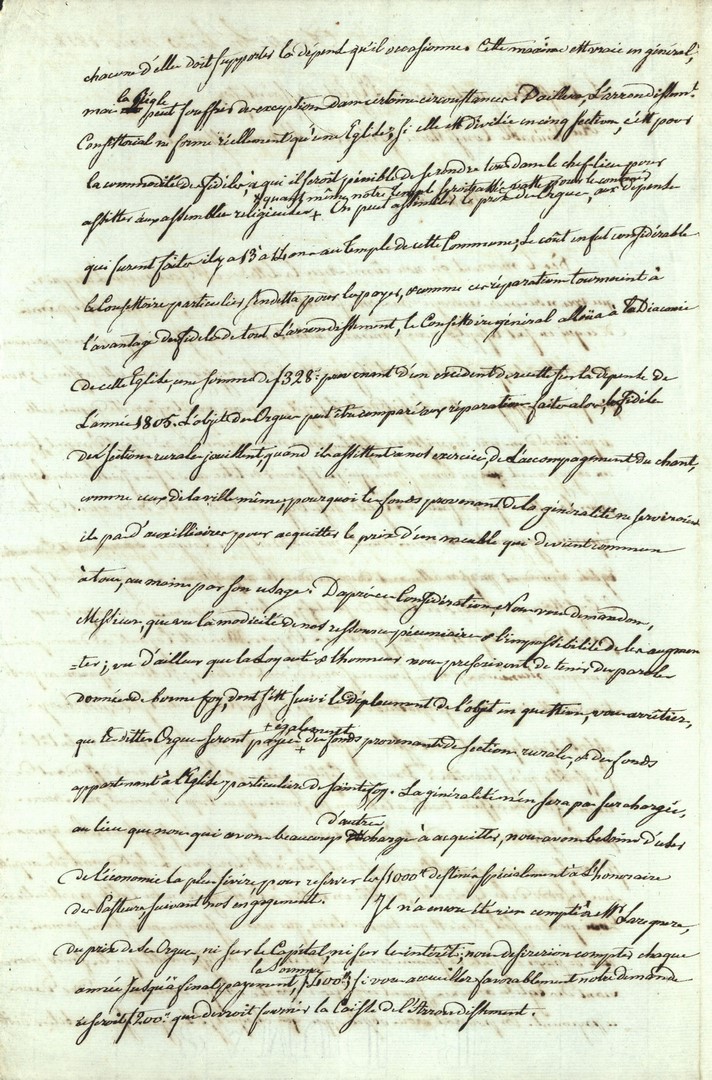 chacune d'elle doit supporter la dépense qu'il occasionne. Cette maxime est vraie en général;
mais la Règle peut souffrir des exceptions dans certaines circonstances. D'ailleurs, L'arrondissemt.
Consistorial ne forme réellement qu'une Eglise; si elle est divisée en cinq sections, c'est pour
la commodité des fidèles, à qui il seroit pénible de se rendre tous dans le chef-lieu pour
+ quand même notre Temple seroit assez vaste pour les contenir
assister aux assemblées religieuses + On peut assimiler le prix de l'Orgue, aux dépenses
qui furent faites il y a 13 à 14 ans au temple de cette Commune; Le coût en fut considérable
le Consistoire particulier s'endetta pour les payer, & comme ces réparations tournoient à
l'avantage des fidèles de tout L'arrondissement, le Consistoire général alloüa à la Diaconie
de cette Eglise, une somme de f 328: provenant d'un excédent de recette sur la dépense de
L'année 1805. L'objet des Orgues peut être comparé aux réparations faites alors; les fidèles
des sections rurales jouissent, quand ils assistent à nos exercices, de L'accompagnement du chant,
comme ceux de la ville même; pourquoi les fonds provenant de la généralité ne serviroient
ils pas d'auxilliaires pour acquitter le prix d'un meuble qui devient commun
à tous, au moins par son usage. D'après ces Considérations, Nous vous demandons,
Messieurs, que vu la modicité de nos ressources pécuniaires & l'impossibilité de les augmen
=ter; vu d'ailleurs que la Loyauté & l'honneur nous prescrivent de tenir des paroles
données de bonne foy, dont s'est suivi le déployment de l'objet en question, vous arrêtiez,
+ également
que les dittes Orgues seront payées + des fonds provenants des sections rurales, & des fonds
appartenant à l'Eglise particulière de Saintefoy. La généralité n'en sera pas surchargée,
d'autres
au lieu que nous qui avons beaucoup charges à acquitter, nous avons besoins d'user
de l'économie la plus sévère, pour réserver les f 1000 destinés spécialement à L'honoraire
des Pasteurs, suivant nos engagements. Il n'a encore été rien compté à Mr.
du prix de ses Orgues, ni sur le Capital, ni sur les intérêts; nous desirerions compter chaque
la Somme
année jusqu'à final payement, f 400; si vous accueillez favorablement notre demande
ce seroit f 200 que devroit fournir la Caisse de l'Arrondissement.